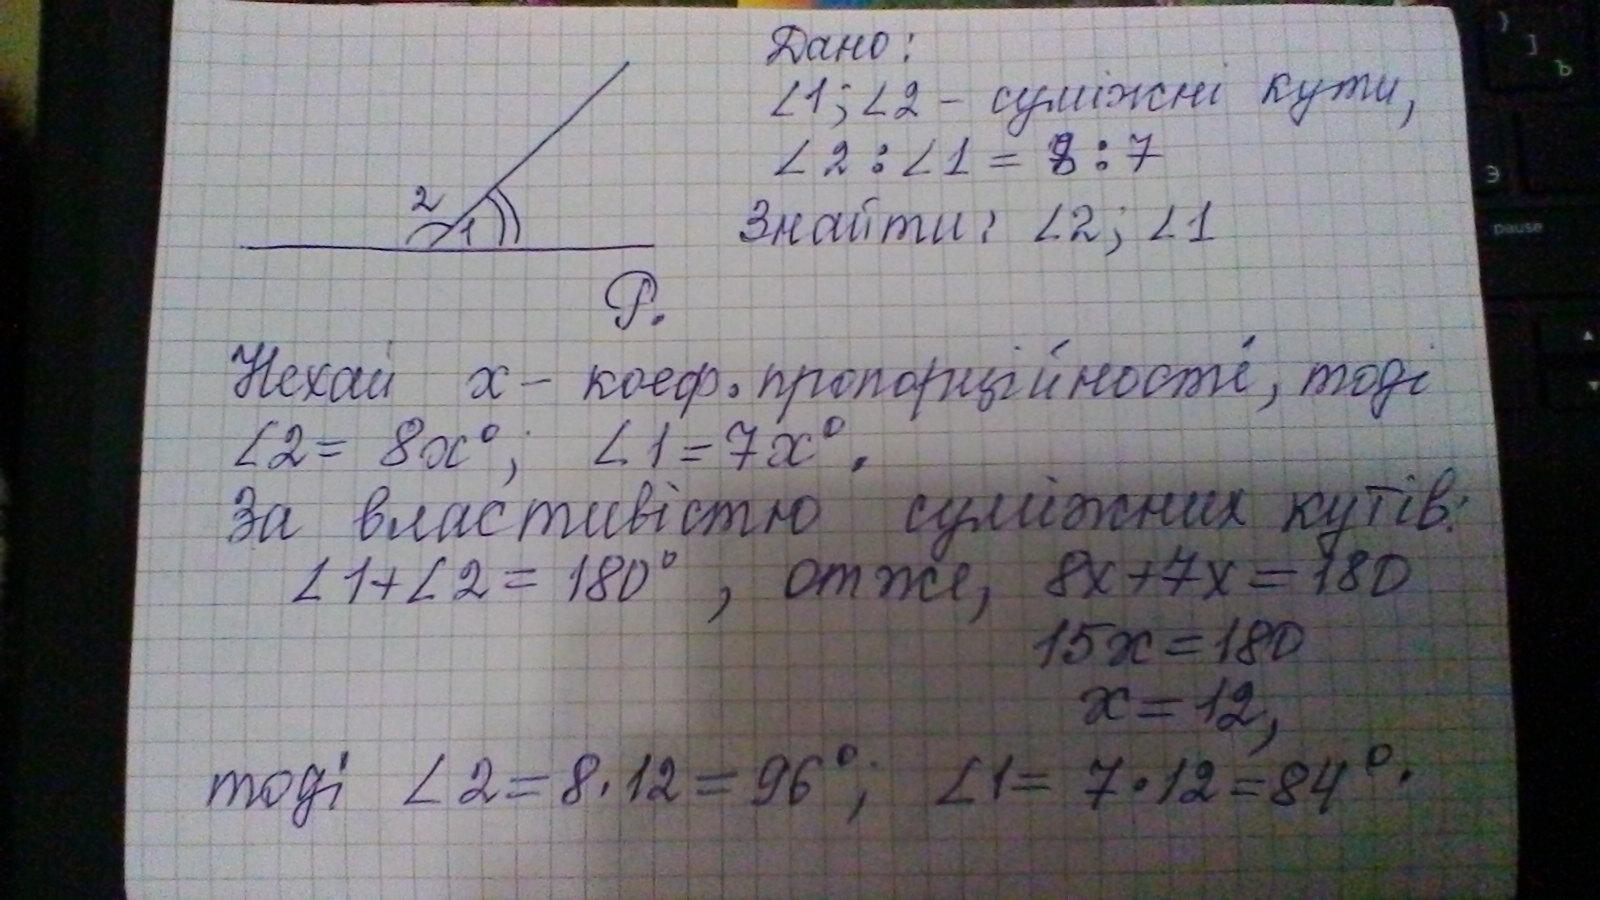 Дано:
∠1; ∠2 - суміжні кути,
∠2 : ∠1 = 8 : 7
Знайти: ∠2; ∠1
2
1
Р.
Нехай x - коеф. пропорційності, тоді
∠2 = 8x°; ∠1 = 7x°.
За властивістю суміжних кутів:
∠1 + ∠2 = 180°, отже, 8x + 7x = 180
15x = 180
x = 12,
тоді ∠2 = 8·12 = 96°; ∠1 = 7·12 = 84°.
)
]
Ъ
Э
pause